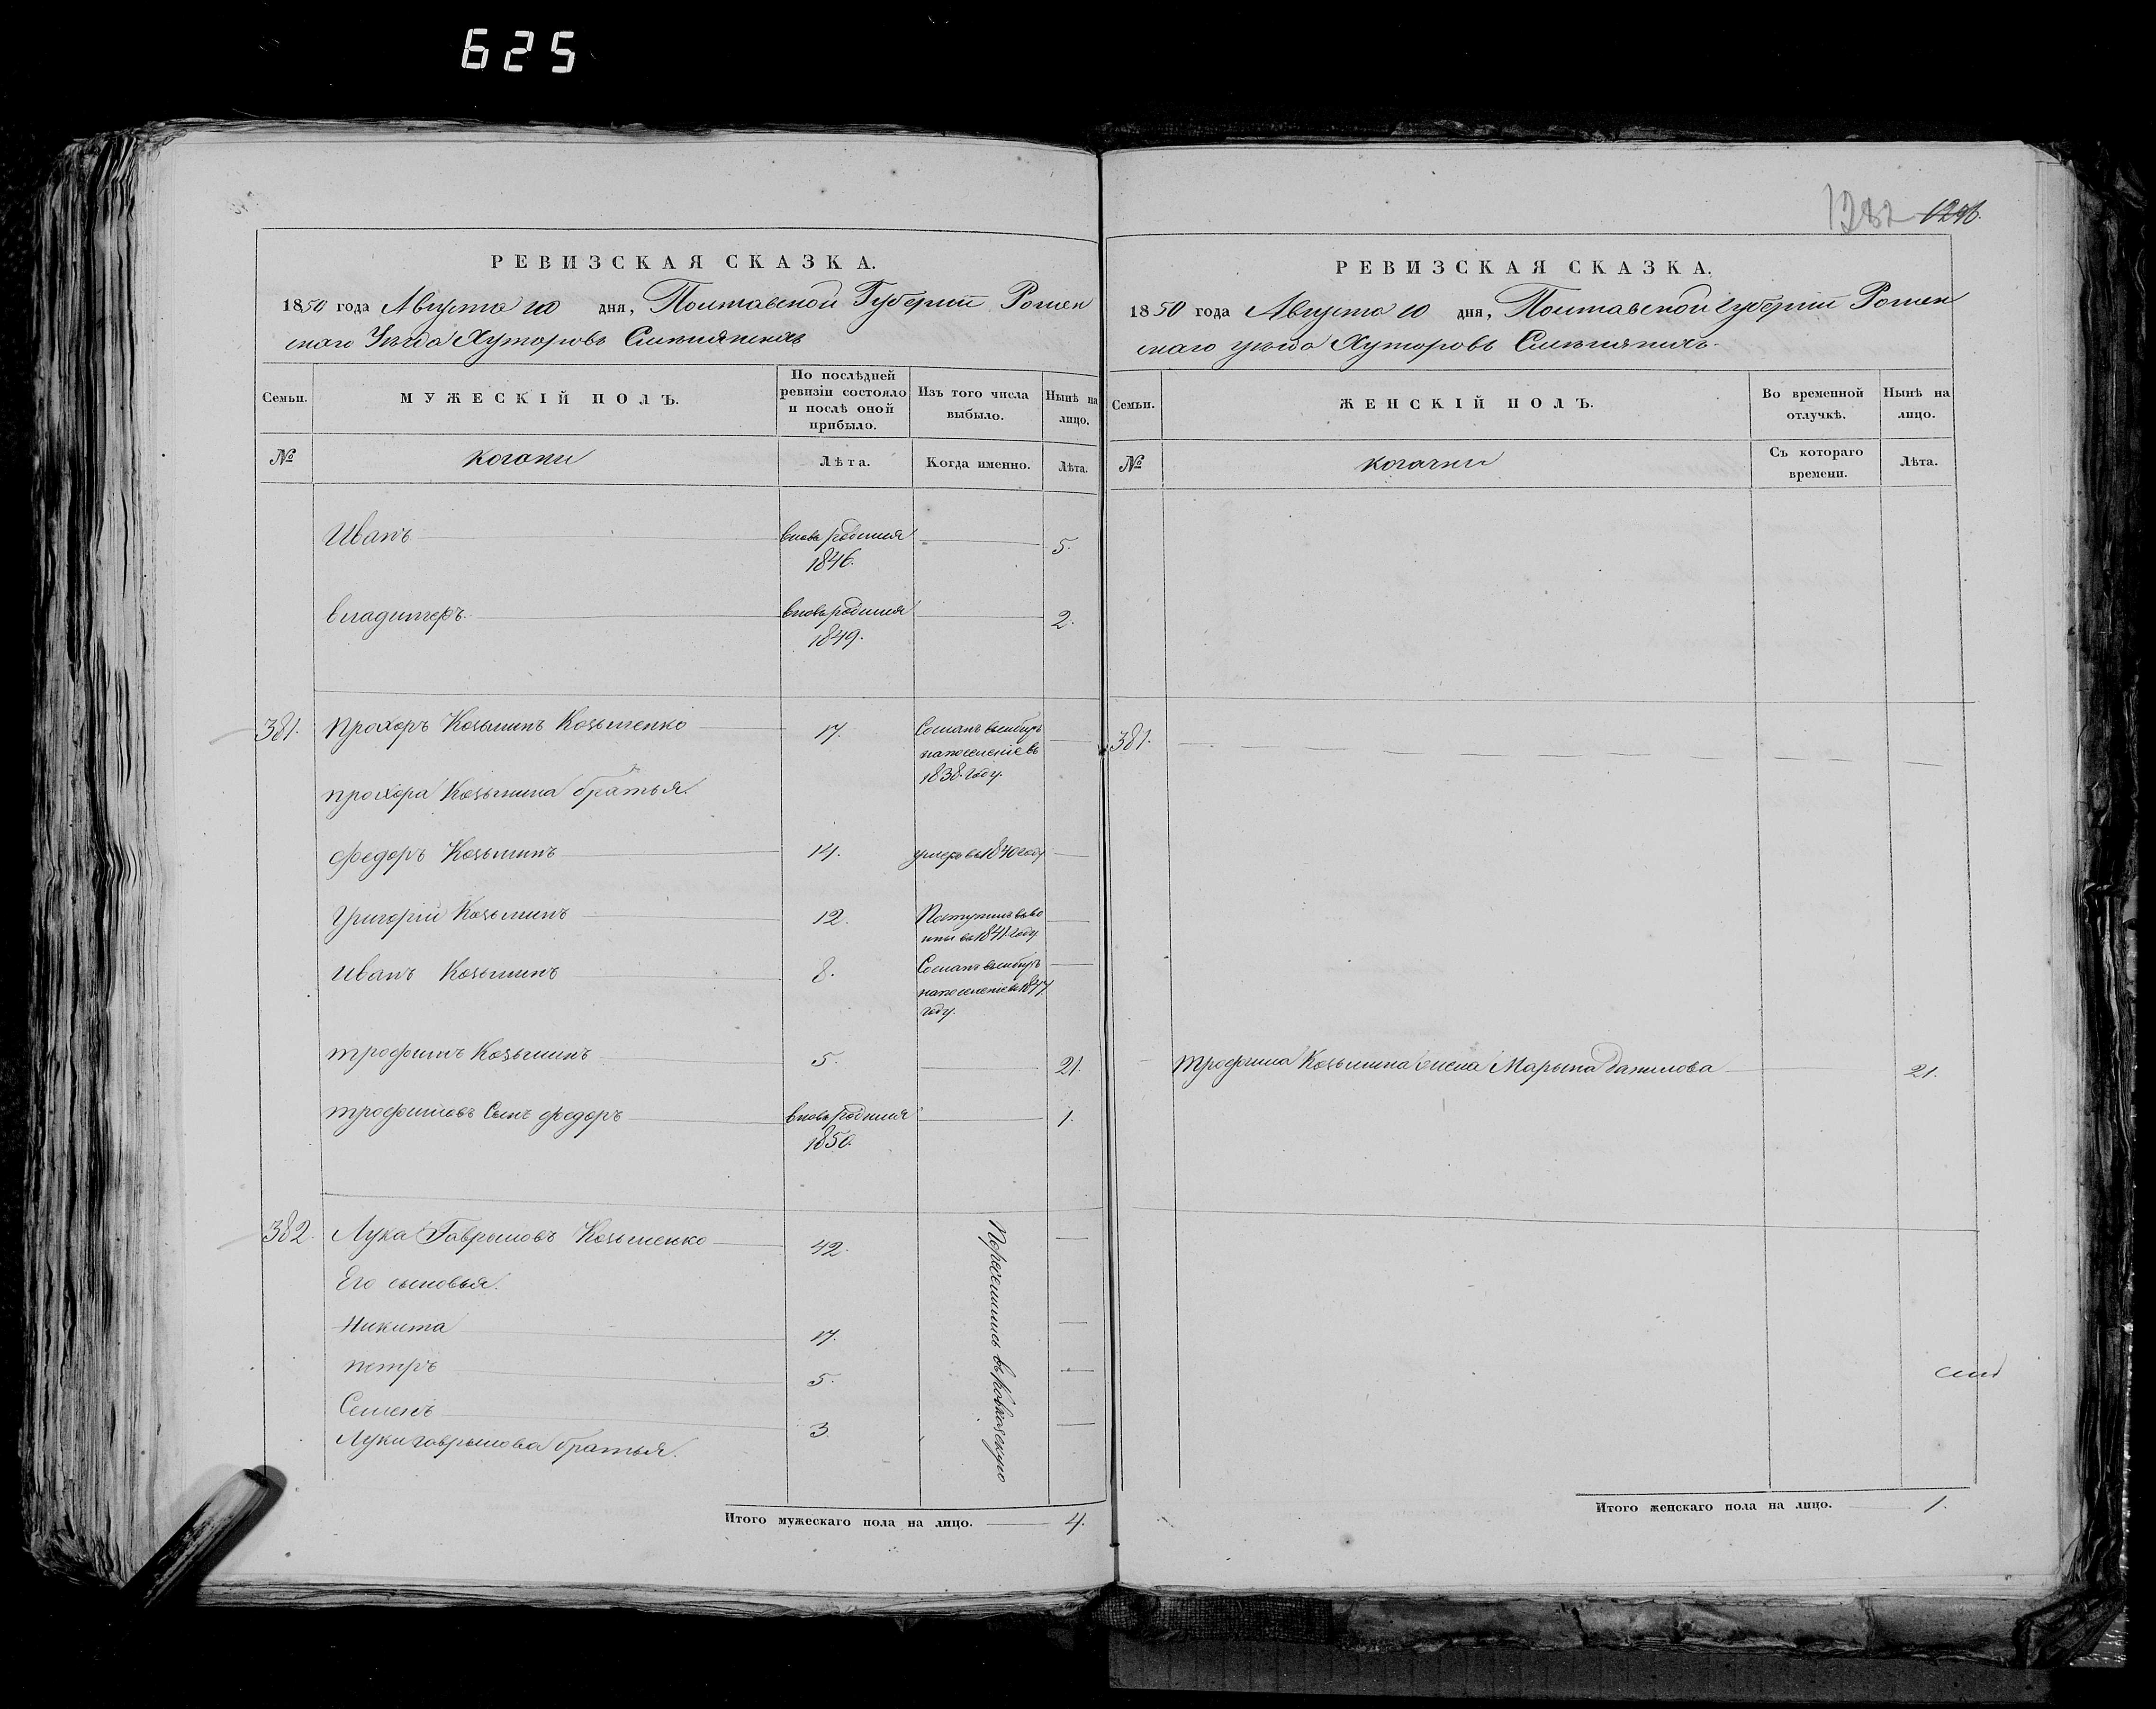 625
1282 1296.
РЕВИЗСКАЯ СКАЗКА.
1850 года Августа 10 дня, Полтавской Губернии Ромен
скаго Уезда Хуторовъ
Семьи.
МУЖЕСКІЙ ПОЛЪ.
По послѣдней ревизіи состояло и послѣ оной прибыло.
Изъ того числа выбыло.
Нынѣ на лицо.
№
козаки
Лѣта.
Когда именно.
Лѣта.
Иванъ вновь рódился 1846. 5.
владимеръ. вновь родился 1849. 2.
381. прохоръ Козьминъ Козьменко 17. Сосланъ въ сибирь на поселеніе въ 1838. году.
прохора Козьмина братья.
федоръ Козьминъ 14. умеръ в 1840 году
Григорій Козьминъ 12. Поступилъ въ во ины в 1841. году.
иванъ Козьминъ 8. Сосланъ въ сибирь на поселеніе в 1847. году.
трофимъ Козьминъ 5. 21.
трофимовъ Сынъ федоръ вновь родился 1850. 1.
382. Лука Гавриловъ Козьменко 42.
Его сыновья.
Никита 17.
петръ 5.
Семенъ 3.
Луки гаврилова братья.
Итого мужескаго пола на лицо. 4.
РЕВИЗСКАЯ СКАЗКА.
1850 года Августа 10 дня, Полтавской губерніи Ромен
скаго уезда Хуторовъ
Семьи.
ЖЕНСКІЙ ПОЛЪ.
Во временной отлучкѣ.
Нынѣ на лицо.
№
козачки
Съ котораго времени.
Лѣта.
381.
трофима Козьмина жена Марьна Данилова 21.
Итого женскаго пола на лицо. 1.